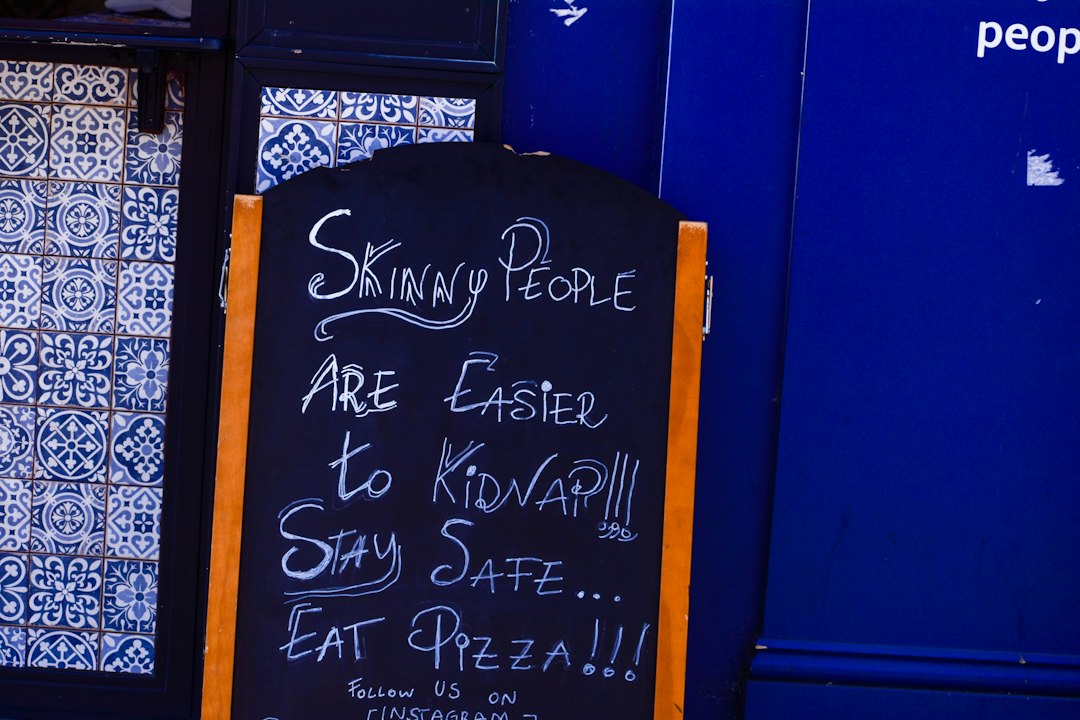 peop
Skinny People
Are Easier
to Kidnap!!!
Stay Safe...
Eat Pizza!!!
Follow us on
[Instagram]